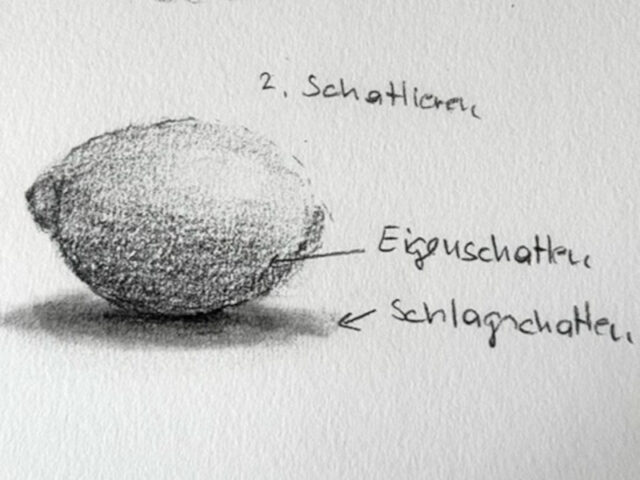 2. Schattieren
Eigenschatten
Schlagschatten